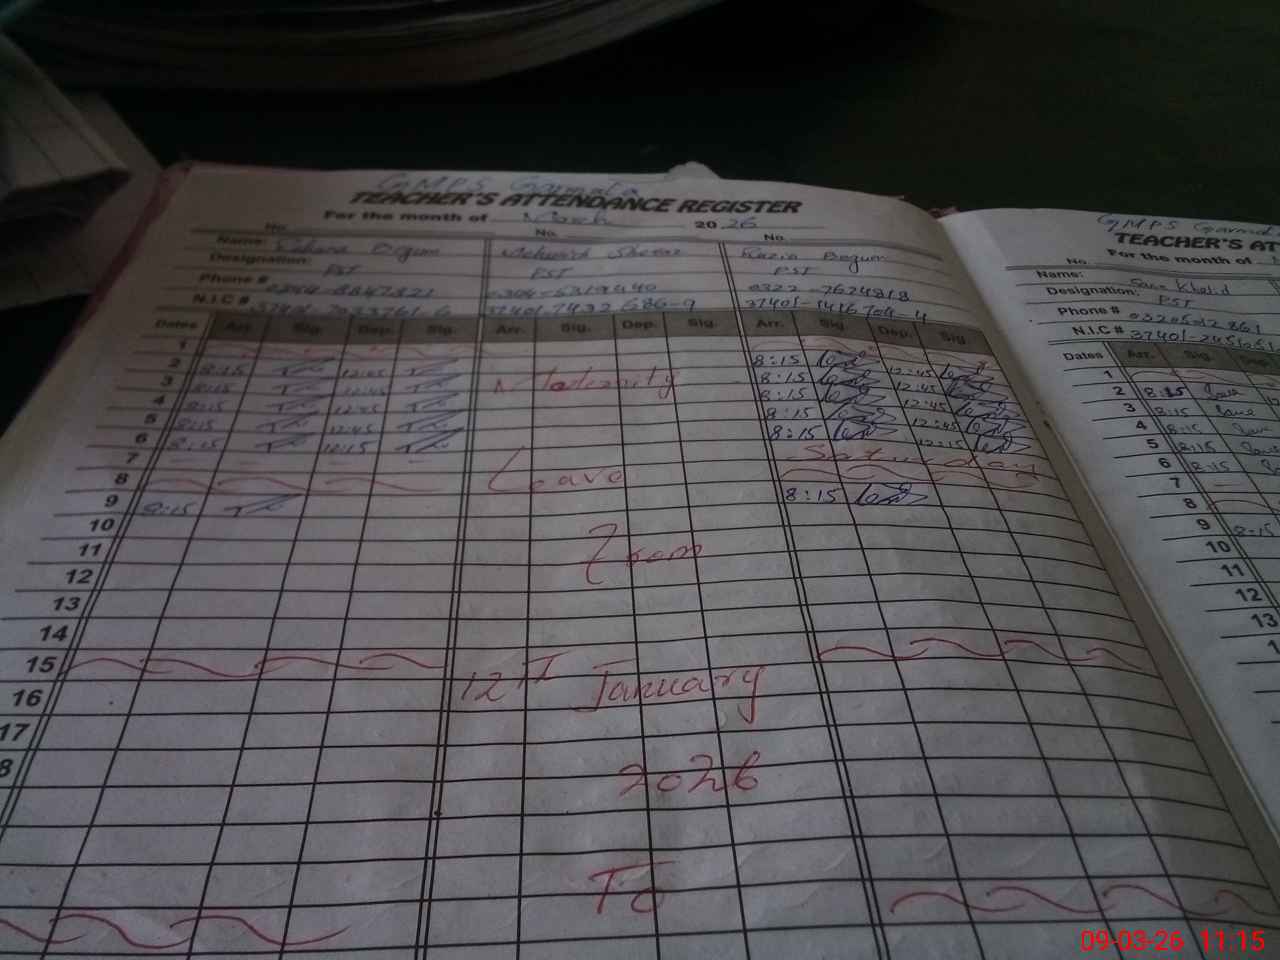 GMPS Garmata
TEACHER'S ATTENDANCE REGISTER
For the month of March 20 26
No. No. No.
Name: Begum Mehwish Razia Begum
Designation: PST PST PST
Phone # 0322-7624818
N.I.C #
Dates Arr. Sig. Dep. Sig. Arr. Sig. Dep. Sig. Arr. Sig. Dep. Sig.
1
2 8:15 12:45 8:15 12:45
3 8:15 12:45 Maternity 8:15 12:45
4 8:15 12:45 8:15 12:45
5 8:15 12:45 8:15 12:45
6 8:15 12:15 8:15 12:15
7 Leave Saturday
8
9 8:15 8:15
10
11 From
12
13
14
15 12 January
16
17 2026
8
To
GMPS Garmat
TEACHER'S AT
For the month of
No.
Name: Sana Khalid
Designation: PST
Phone #
N.I.C #
Dates Arr. Sig. Dep
1
2 8:15
3 8:15
4 8:15
5 8:15
6 8:15
7
8
9 8:15
10
11
12
13
09-03-26 11:15